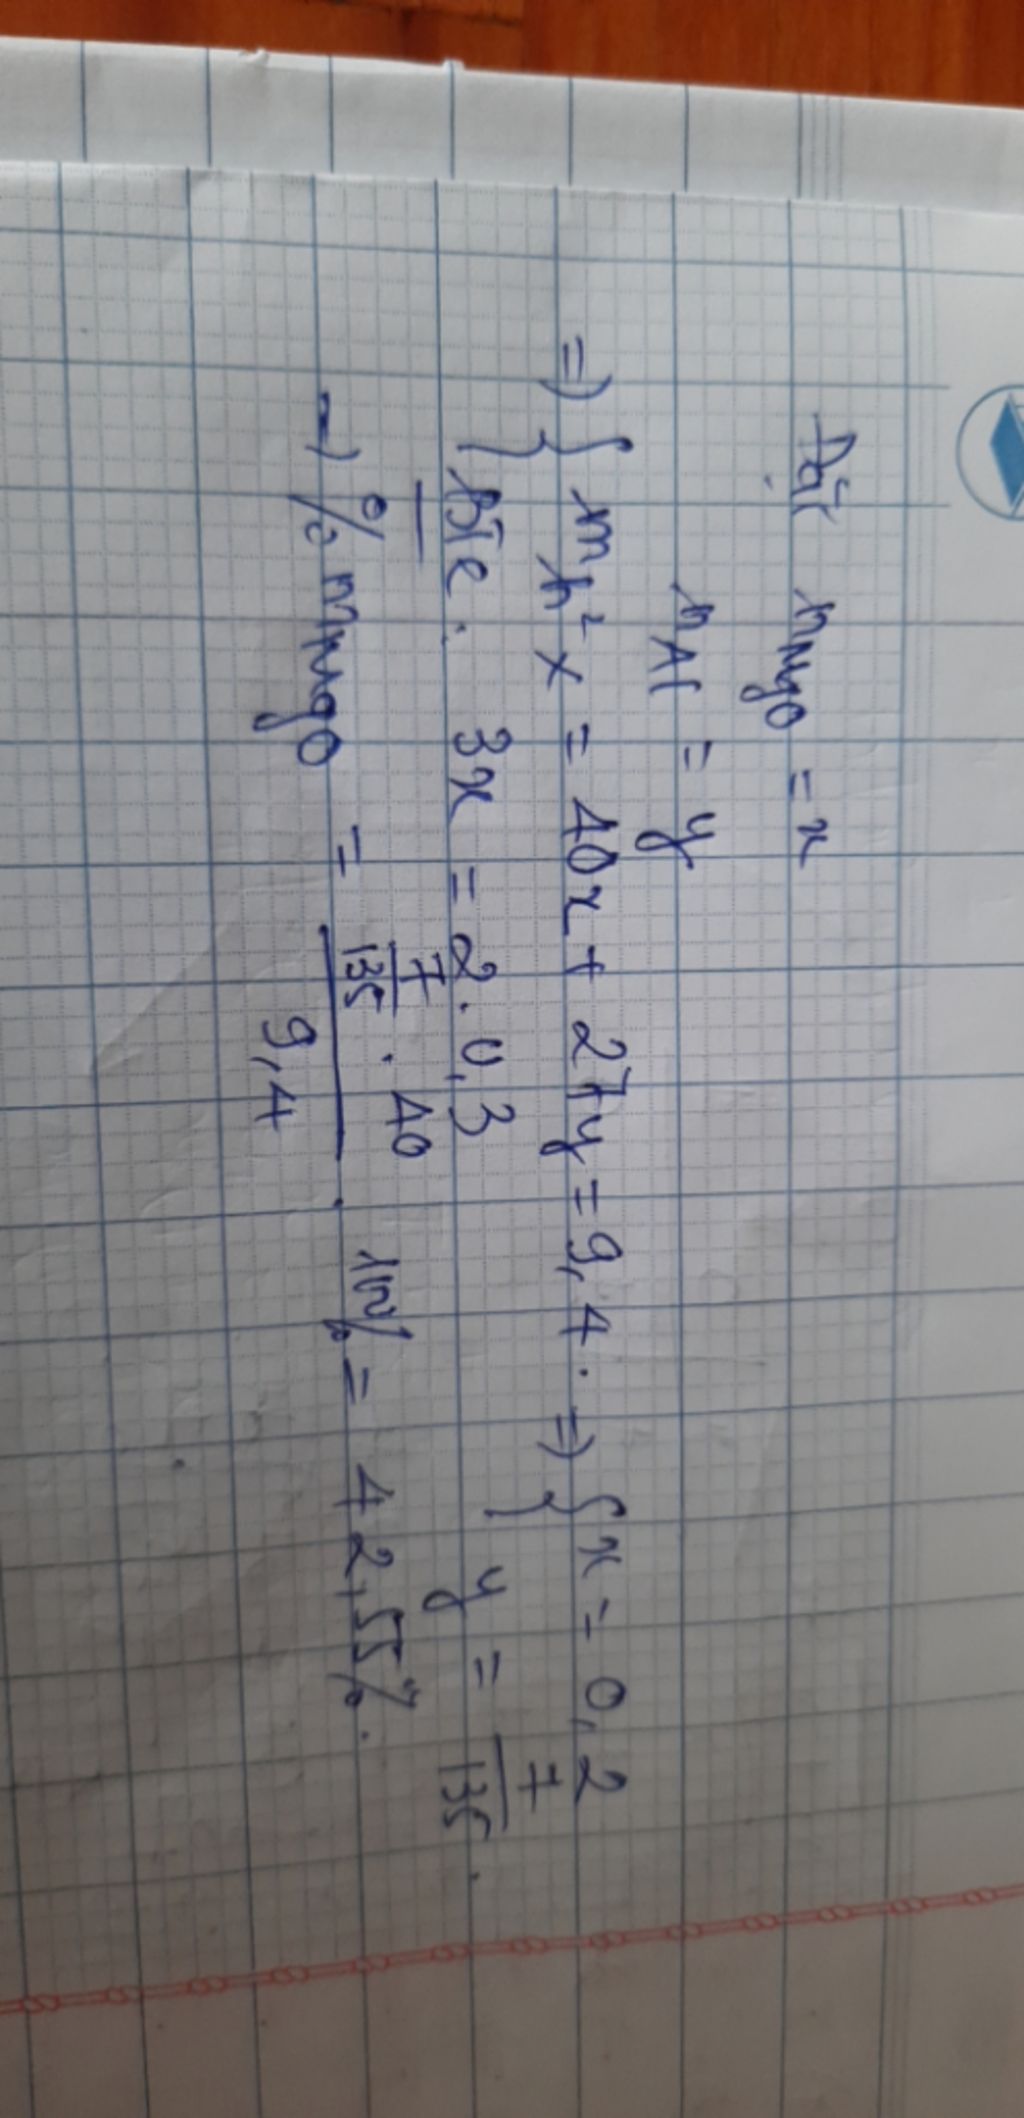 Đặt nMgO = x
nAl = y
=> { mh² x = 40x + 27y = 9,4. => { x = 0,2
BTe: 3x = 2.0,3 y = 7/135.
→ % mMgO = (7/135 . 40)/9,4 . 100% = 42,55%.